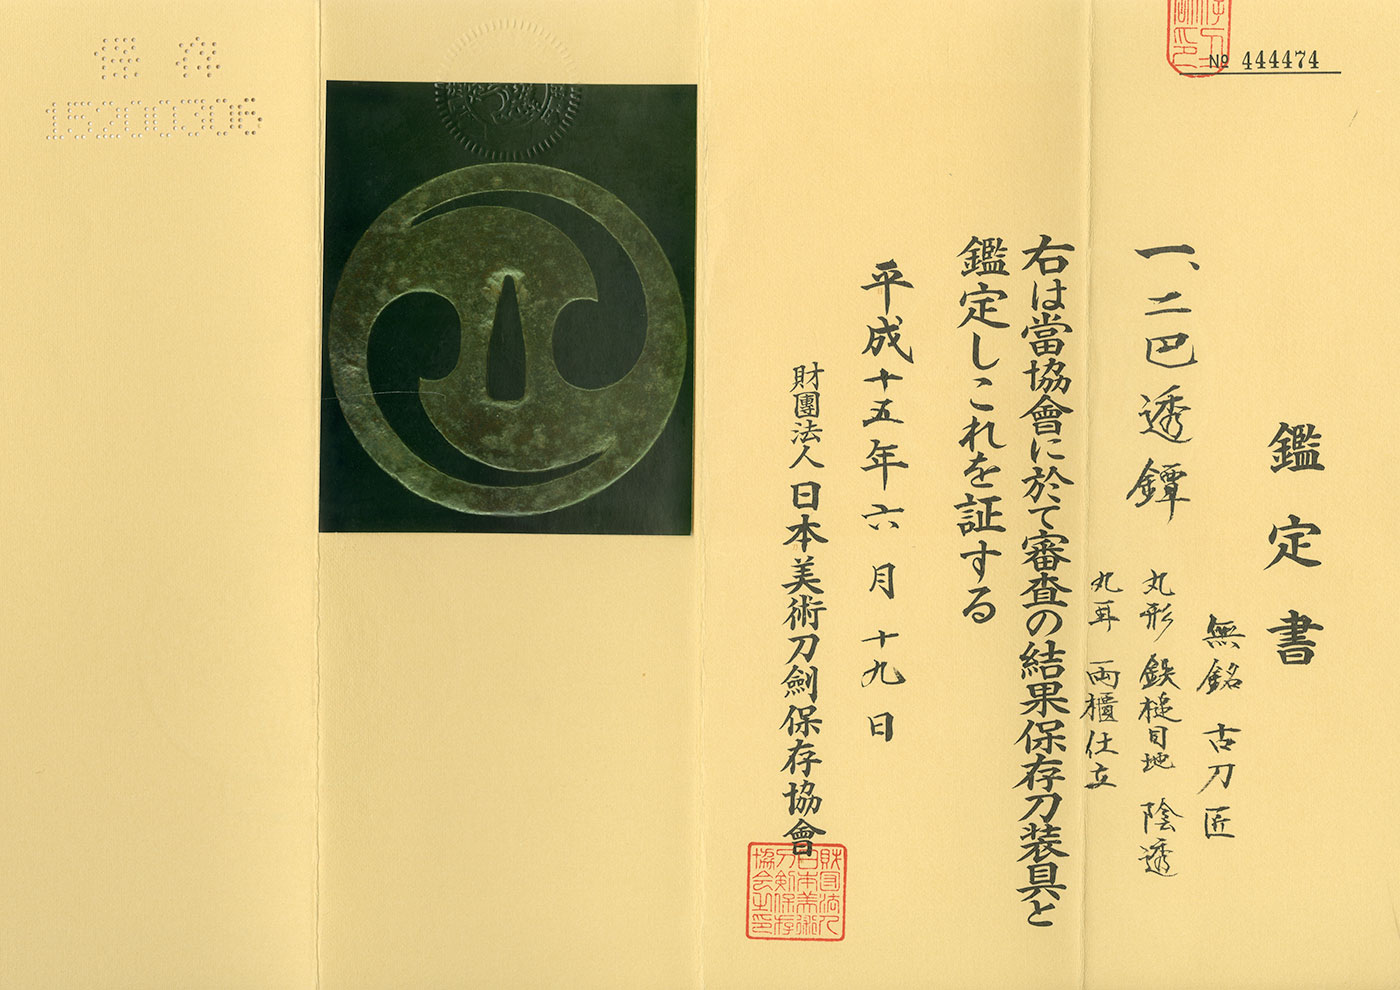 № 444474
鑑定書
一、二巴透鐔
無銘 古刀匠
丸形 鉄槌目地 陰透
丸耳 両櫃仕立
右は當協會に於て審査の結果保存刀装具と
鑑定しこれを証する
平成十五年六月十九日
財團法人日本美術刀劍保存協會
財団法人
日本美術
刀剣保存
協会之印
保存
15200306